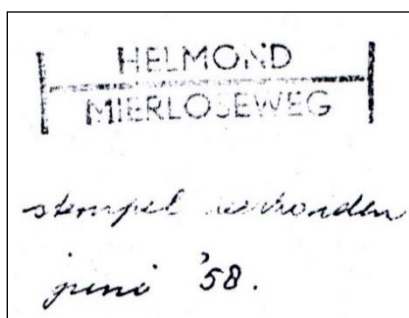 HELMOND
MIERLOSEWEG
stempel verzonden
juni '58.